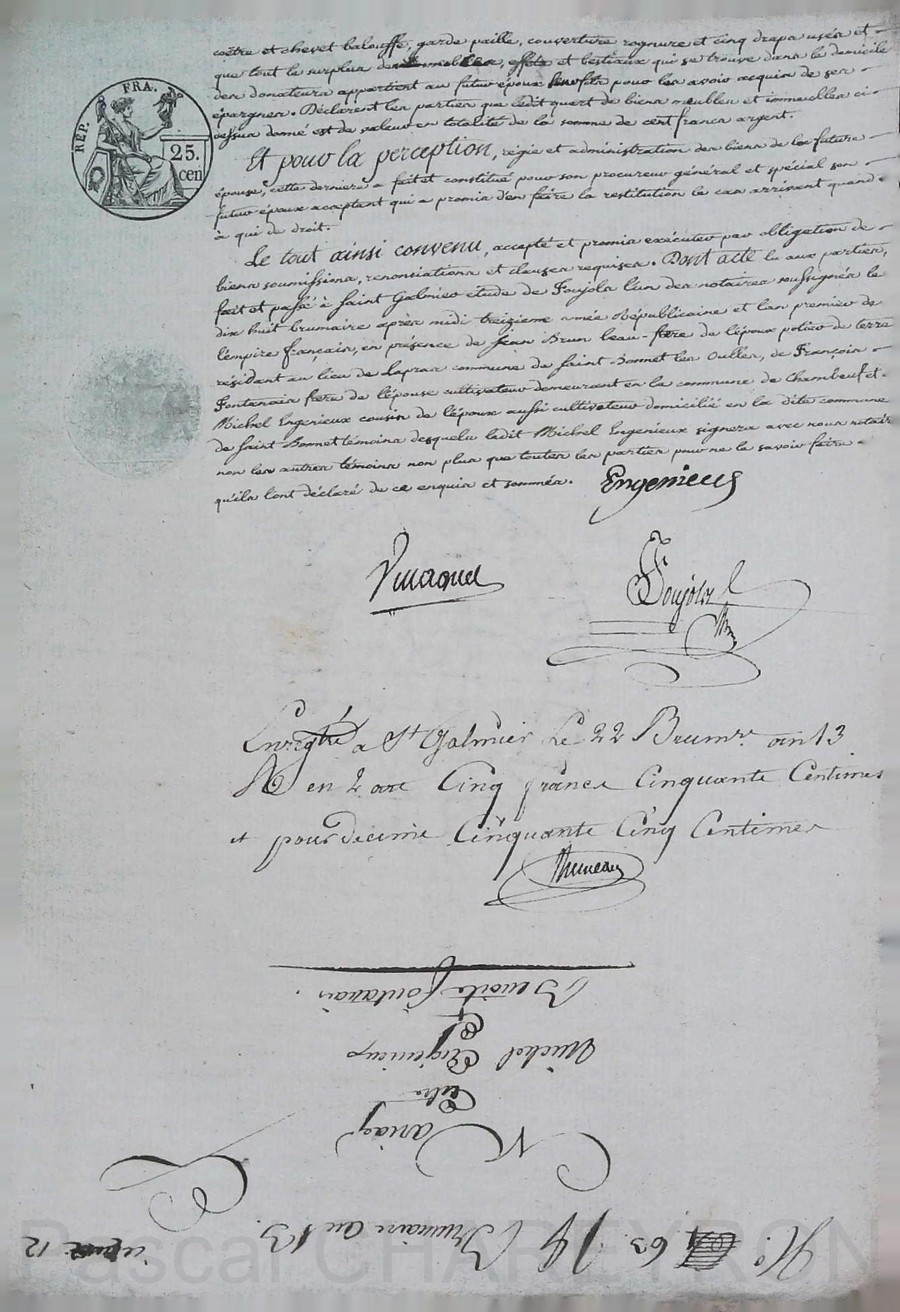 coëtre et chevet balouffe, garde paille, couverture rognure et cinq drapa usés et
que tout le surplus des effets et bestiaux qui se trouve dans le domicile
des donateurs appartient au futur époux pour les avoir acquis de ses
épargnes. Déclarent les parties que ledit quart de biens meubles et immeubles ci
dessus donné est de valeur en totalité de la somme de cent francs argent.
Et pour la perception, régie et administration des biens de la future
épouse, cette dernière a fait et constitué pour son procureur général et spécial son
futur époux acceptant qui a promis d'en faire la restitution le cas arrivant quand
à qui de droit.
Le tout ainsi convenu, accepté et promis exécuter par obligation de
biens soumissions, renonciations et clauses requises. Dont acte lu aux parties,
fait et passé à Saint Galmier étude de Foujols l'un des notaires soussignés le
dix huit brumaire après midi treizième année Républicaine et l'an premier de
l'empire français, en présence de Jean Brun beau-frère de l'époux potier de terre
résidant au lieu de Lapras commune de Saint Bonnet les Oulles, de François
Fontanais frère de l'épouse cultivateur demeurant en la commune de Chambeuf et
Michel Engenieux cousin de l'époux aussi cultivateur domicilié en la dite commune
de Saint Bonnet témoins desquels ledit Michel Engenieux signera avec nous notaires
non les autres témoins non plus que toutes les parties pour ne le savoir faire
qu'ils l'ont déclaré de ce enquis et sommés.
Engenieux
Foujols
Enregtré a St Galmier le 22 Brumre an 13
en 2 Cinq francs Cinquante Centimes
et pour decime Cinquante Cinq Centimes
Benoite Fontanais.
Et
Michel Engenieux
Entre
Mariage
No. 63. 18 Brumaire an 13.
12
REP. FRA.
25.
cen
Pascal CHAREYRON